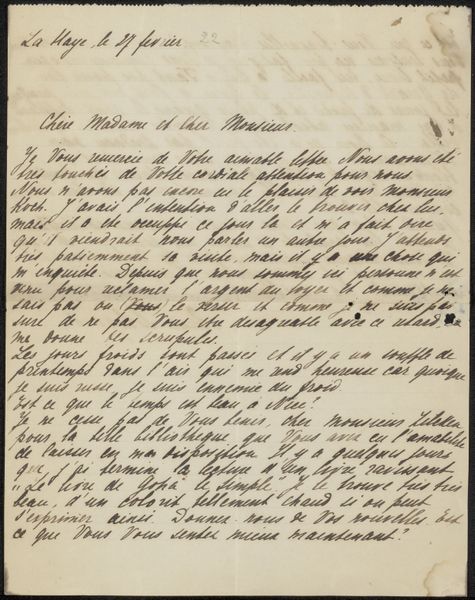 La Haye, le 27 fevrier 22
Chère Madame et Cher Monsieur.
Je Vous remercie de Votre aimable lettre. Nous avons été
très touchés de Votre cordiale attention pour nous.
Nous n'avons pas encore eu le plaisir de voir monsieur
Koch. J'avais l'intention d'aller le trouver chez lui,
mais il a été occupé ce jour là et m'a fait dire
qu'il viendrait nous parler un autre jour. J'attends
très patiemment sa visite, mais il y a une chose qui
m'enquiète. Depuis que nous sommes ici personne n'est
venu pour réclamer l'argent du loyer et comme je ne
sais pas où Vous le verser et comme je ne suis pas
sûre de ne pas Vous être désagréable avec ce retard,
me donne des scrupules.
Les jours froids sont passés et il y a un souffle de
printemps dans l'air qui me rend heureuse car quoique
je suis russe je suis ennemie du froid.
Est ce que le temps est beau à Nice?
Je ne cesse pas de Vous bénir, cher monsieur Zilcken
pour la belle bibliothèque, que Vous avez eu l'amabilité
de laisser en ma disposition. Il y a quelques jours
que j'ai terminé la lecture d'un livre ravissant
"Le livre de Goha le simple". Je le trouve très très
beau, d'un coloris tellement chaud si on peut
s'exprimer ainsi. Donnez nous de Vos nouvelles. Est
ce que Vous Vous sentez mieux maintenant?